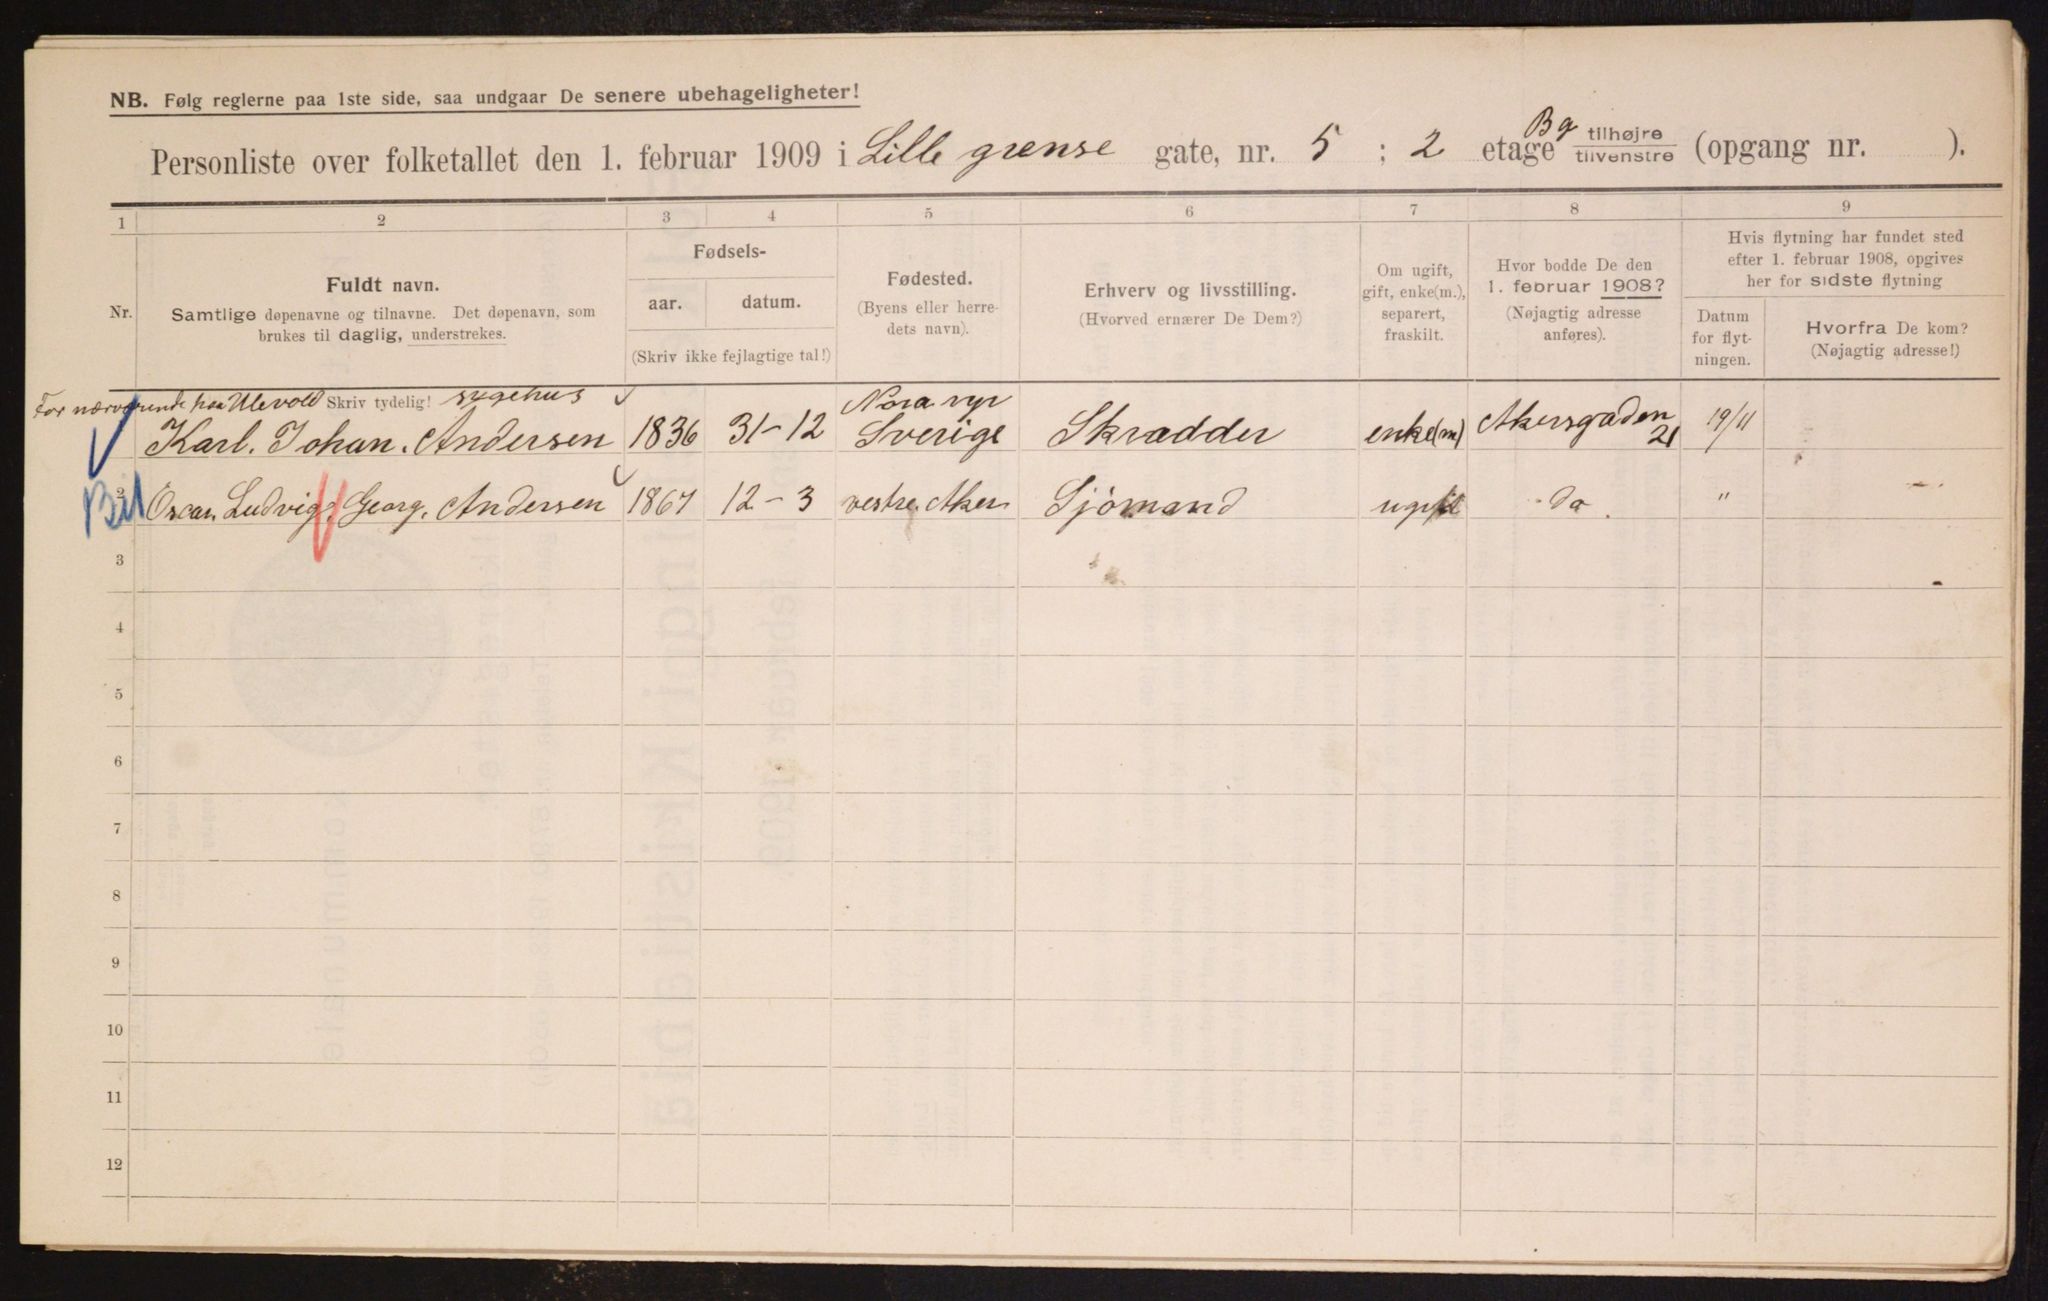 NB. Følg reglerne paa 1ste side, saa undgaar De senere ubehageligheter!
Personliste over folketallet den 1. februar 1909 i Lille grense gate, nr. 5 ; 2 etage Bg tilhøjre tilvenstre (opgang nr. ).
1 2 3 4 5 6 7 8 9
Nr.
Fuldt navn.
Samtlige døpenavne og tilnavne. Det døpenavn, som
brukes til daglig, understrekes.
Fødsels-
aar. datum.
(Skriv ikke fejlagtige tal!)
Fødested.
(Byens eller herre-
dets navn).
Erhverv og livsstilling.
(Hvorved ernærer De Dem?)
Om ugift,
gift, enke(m.),
separert,
fraskilt.
Hvor bodde De den
1. februar 1908?
(Nøjagtig adresse
anføres).
Hvis flytning har fundet sted
efter 1. februar 1908, opgives
her for sidste flytning
Datum
for flyt-
ningen.
Hvorfra De kom?
(Nøjagtig adresse!)
For nærværende paa Ulevold Skriv tydelig! sygehus
Karl. Johan. Andersen 1836 31-12 Nora Sverige Skrædder enke(m) Akersgaden 21 19/11
2 Oscar. Ludvig. Georg. Andersen 1867 12-3 vestre. Aker Sjömand ugift do " -
3
4
5
6
7
8
9
10
11
12